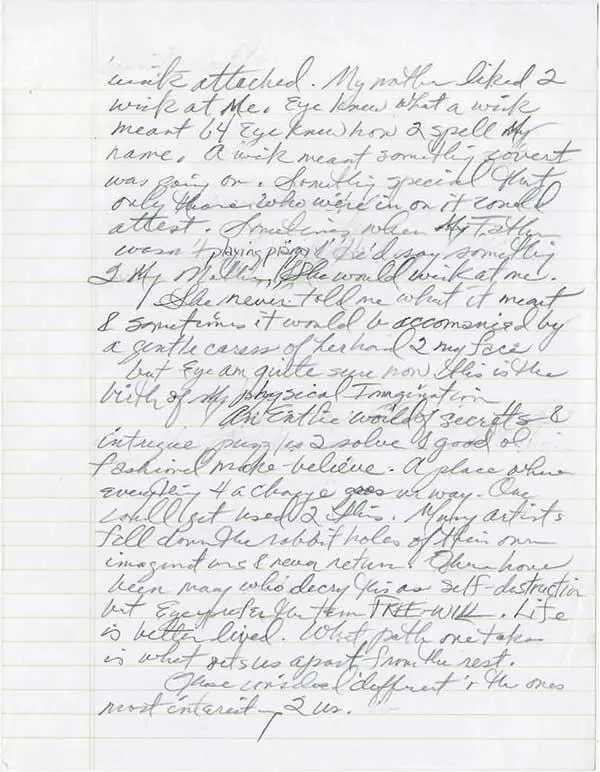 wink attached. My mother liked 2
wink at me. Eye knew what a wink
meant b4 Eye knew how 2 spell My
name. A wink meant something covert
was going on. Something special that
only those who were in on it could
attest. Sometimes when My Father
wasn't playing piano he'd say something
2 My Mother & she would wink at me.
She never told me what it meant
& sometimes it would be accompanied by
a gentle caress of her hand 2 my face
but Eye am quite sure now this is the
birth of My physical Imagination
An Entire world of secrets &
intrigue puzzles 2 solve & good ol'
fashioned make-believe. A place where
everything 4 a change goes ur way. One
could get used 2 this. Many artists
fall down the rabbit holes of their own
imaginations & never return. There have
been many who decry this as self-destruction
but Eye prefer the term FREE-WILL. Life
is better lived. What path one takes
is what sets us apart from the rest.
Those considered 'different' r the ones
most interesting 2 us.